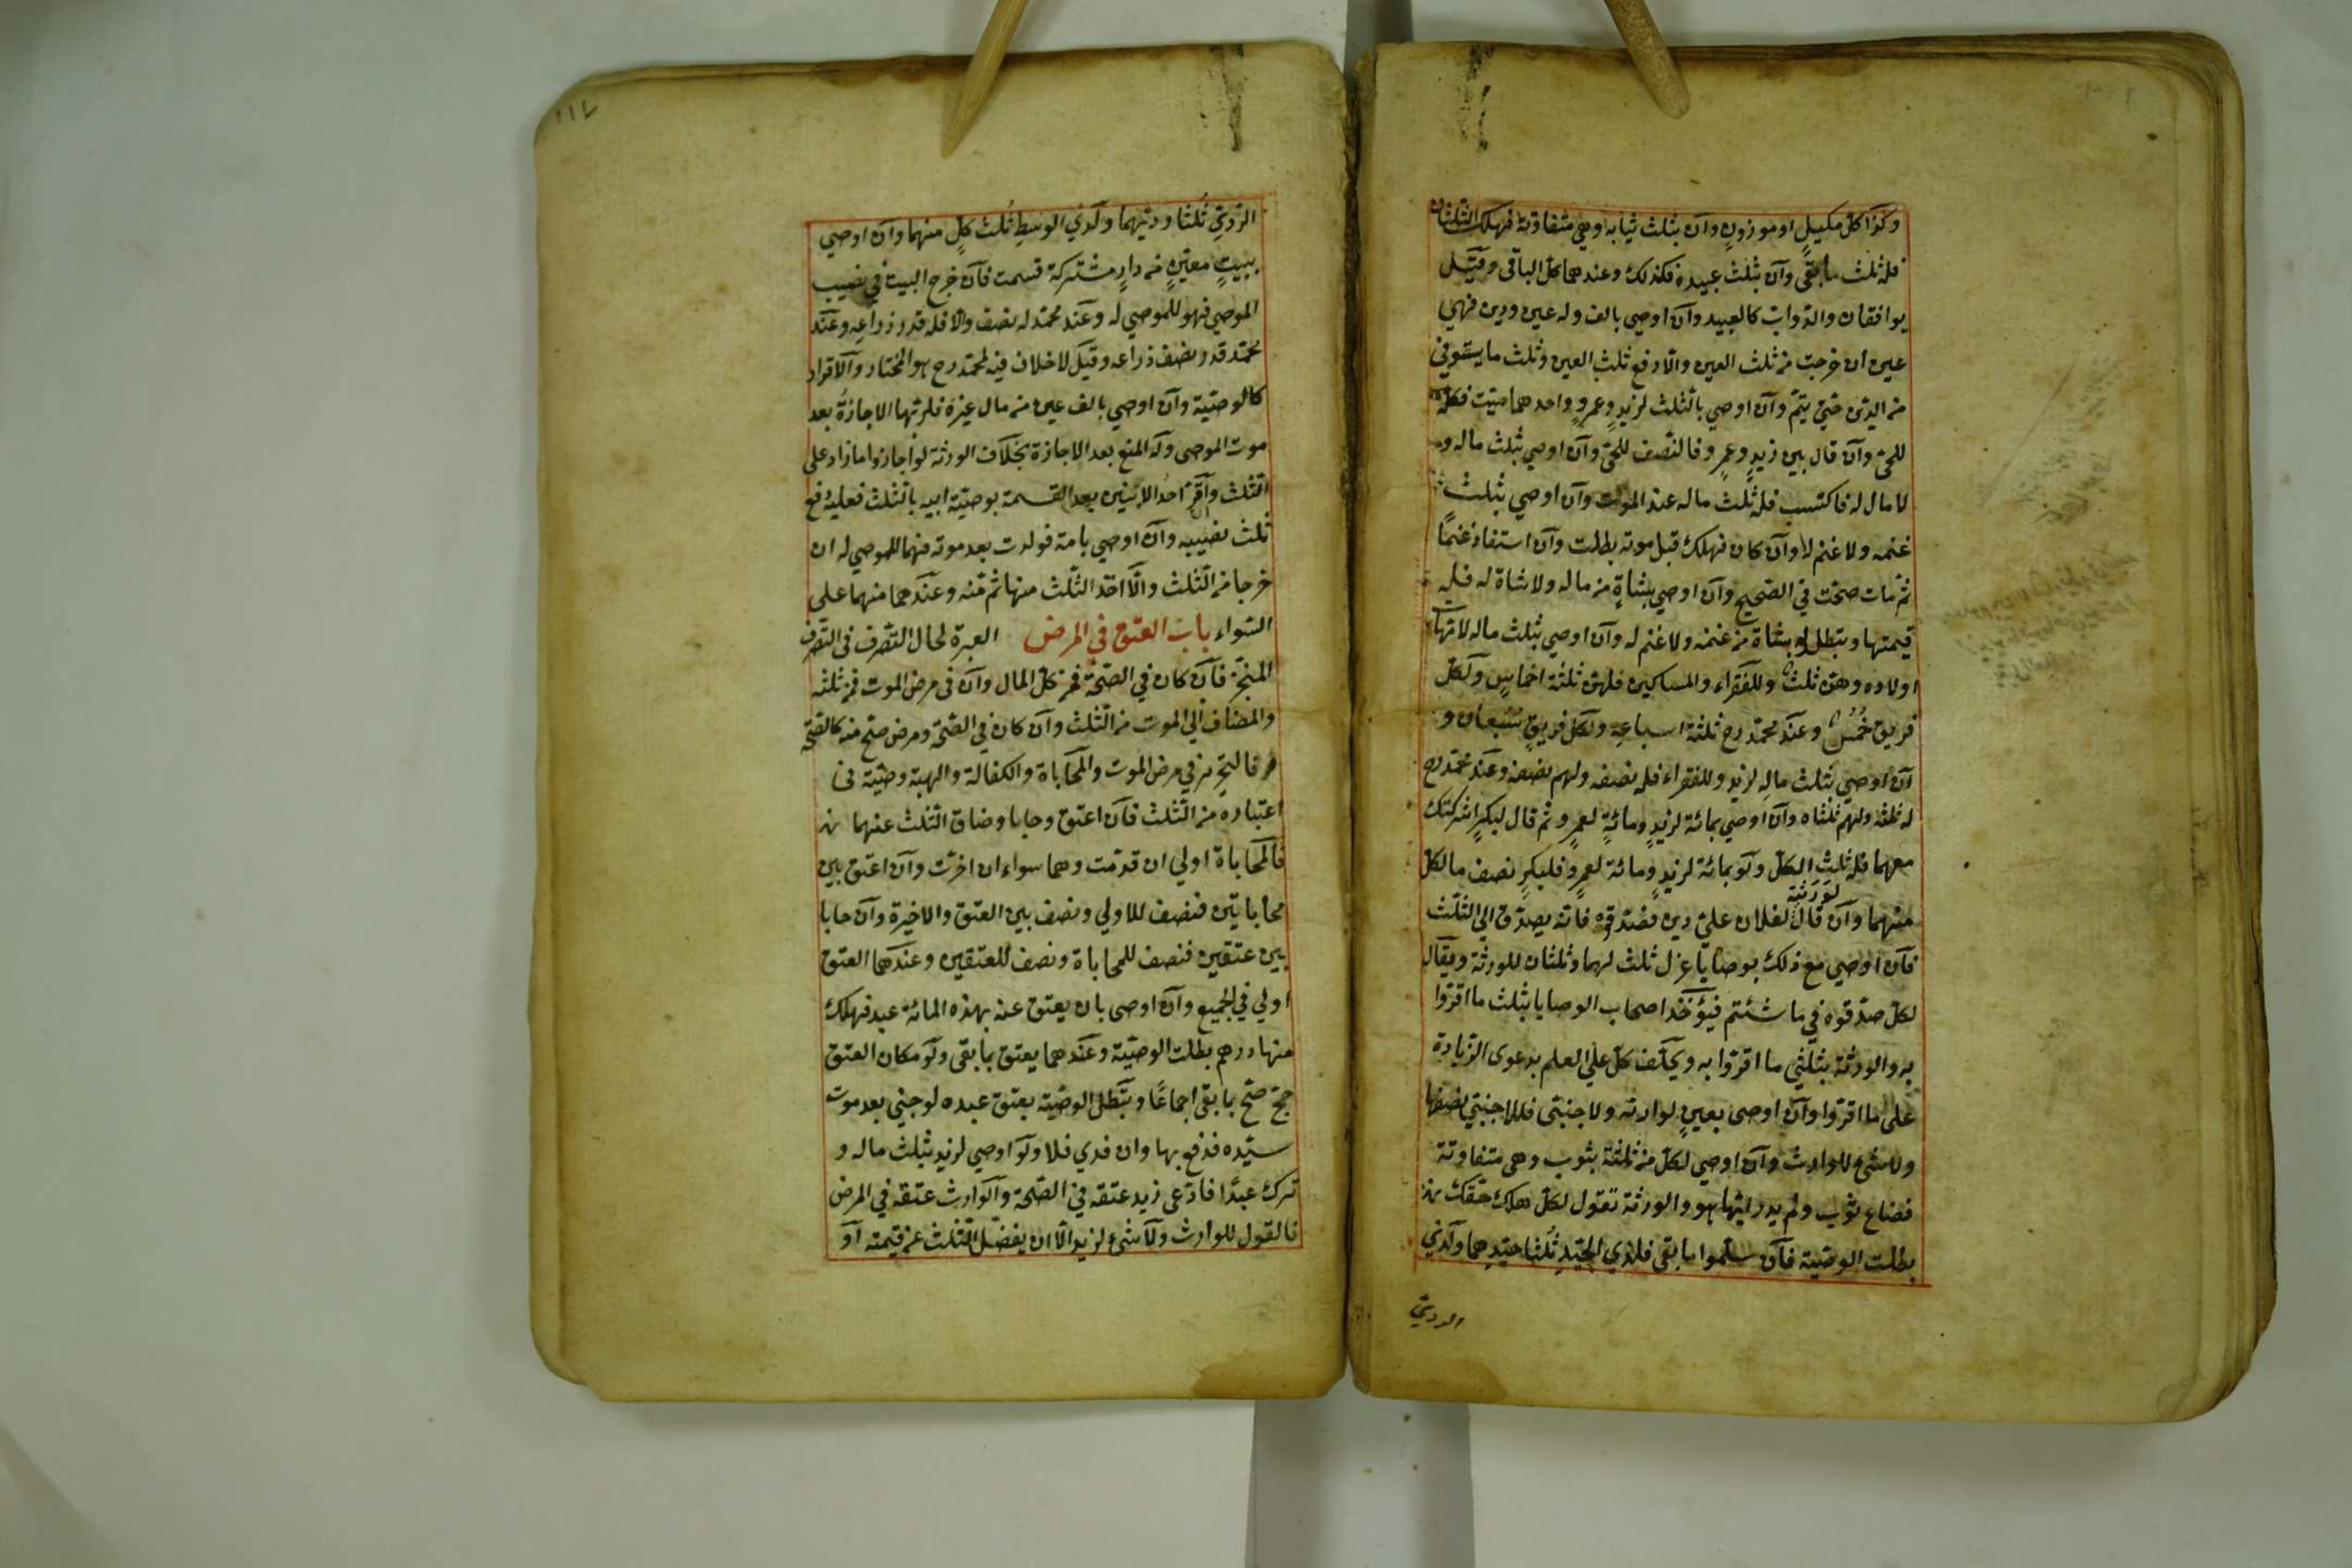 وكذا كل مكيل او موزون وآن بثلث ثيابه وهي متفاوتة فهلك الثلثان
فله ثلث ما بقي وآن بثلث عبيده فكذلك وعندهما كل الباقي وقيل
يوافقان والدواب كالعبيد وآن اوصي بالف وله عين ودين فهي
عين ان خرجت من ثلث العين والّا دفع ثلث العين وثلث ما يستوفي
من الدين حتي يتمّ وآن اوصي بالثلث لزيد وعمرو واحدهما ميت فكله
للحيّ وآن قال بين زيد وعمرو فالنصف للحيّ وآن اوصي بثلث ماله و
لا مال له فاكتسب فله ثلث ماله عند الموت وآن اوصي بثلث
غنمه ولا غنم له وآن كان فهلك قبل موته بطلت وآن استفاد غنمًا
ثمّ مات صحّت في الصحيح وآن اوصي بشاةٍ من ماله ولا شاة له فله
قيمتها وتبطل لو بشاة من غنمه ولا غنم له وآن اوصي بثلث ماله لامّهات
اولاده وهنّ ثلث وللفقراء والمساكين فلهنّ ثلثة اخماس ولكل
فريق خُمُس وعند محمّد رح ثلثة اسباعه ولكل فريق سُبُعان و
آن اوصي بثلث ماله لزيد وللفقراء فله نصفه ولهم نصفه وعند محمّد رح
له ثلثه ولهم ثلثاه وآن اوصي بمائة لزيد ومائةٍ لعمرٍو ثم قال لبكرٍ اشركتك
معهما فله ثلث الكل ولو بمائة لزيد ومائة لعمرو فلبكر نصف ما لكل
منهما وآن قال لورثته لفلان عليّ دين فصدقوه فانّه يصدّق الي الثلث
فآن اوصي مع ذلك بوصايا عزل ثلث لهما وثلثان للورثة ويقال
لكل صدّقوه في ما شئتم فيؤخذ اصحاب الوصايا بثلث ما اقرّوا
به والورثة بثلثي ما اقرّوا به ويحلّف كل علي العلم بدعوى الزيادة
على ما اقرّوا وآن اوصى بعينٍ لوارثه ولاجنبي فللاجنبي نصفها
ولا شئ للوارث وآن اوصي لكل من ثلثة بثوب وهي متفاوتة
فضاع ثوب ولم يدر ايّها هو والورثة تقول لكل هلك حقّك
بطلت الوصيّة فآن سلّموا ما بقي فلذي الجيّد ثُلثا جيّدهما ولذي
الرديّ
١١٧
الرّديّ ثُلثا رديّهما ولذي الوسط ثُلث كلٍ منهما وآن اوصي
ببيتٍ معيّنٍ من دارٍ مشتركة قسمت فآن خرج البيت في نصيب
الموصي فهو للموصي له وعند محمّد له نصفه والّا فله قدر ذراعه وعند
محمّد قدر نصف ذراعه وقيل لا خلاف فيه لمحمّد رح هو المختار والاقرار
كالوصيّة وآن اوصي بالف عين من مال غيره فلربّها الاجازة بعد
موت الموصى وله المنع بعد الاجازة بخلاف الورثة لو اجازوا ما زاد على
الثلث وآقرّ احد الابنين بعد القسمة بوصيّة ابيه بالثلث فعليه دفع
ثلث نصيبه وآن اوصي بامة فولدت بعد موته فهما للموصي له ان
خرجا من الثلث والّا اخذ الثلث منها ثم منه وعندهما منهما علي
السّواء باب العتق في المرض العبرة لحال التصرف في التصرف
المنجّز فآن كان في الصحّة فمن كل المال وآن في مرض الموت فمن ثلثه
والمضاف الي الموت من الثلث وآن كان في الصحّة ومرض صحّ منه كالصحّة
فالتحرير في مرض الموت والمحاباة والكفالة والهبة وصيّة في
اعتباره من الثلث فآن اعتق وحابا وضاق الثلث عنهما
فالمحاباة اولي ان قدّمت وهما سواء ان اخرت وآن اعتق بين
محاباتين فنصف للاولي ونصف بين العتق والاخيرة وآن حابا
بين عتقين فنصف للمحاباة ونصف للعتقين وعندهما العتق
اولي في الجميع وآن اوصى بان يعتق عنه بهذه المائة عبد فهلك
منها درهم بطلت الوصيّة وعندهما يعتق بما بقي ولو مكان العتق
حجّ صحّ بما بقي اجماعًا وتبطل الوصيّة بعتق عبده لو جني بعد موت
سيّده فدفع بها وان فدي فلا ولو اوصي لزيد بثلث ماله و
ترك عبدًا فادّعى زيد عتقه في الصّحة والوارث عتقه في المرض
فالقول للوارث ولا شئ لزيد الّا ان يفضل الثلث عن قيمته او